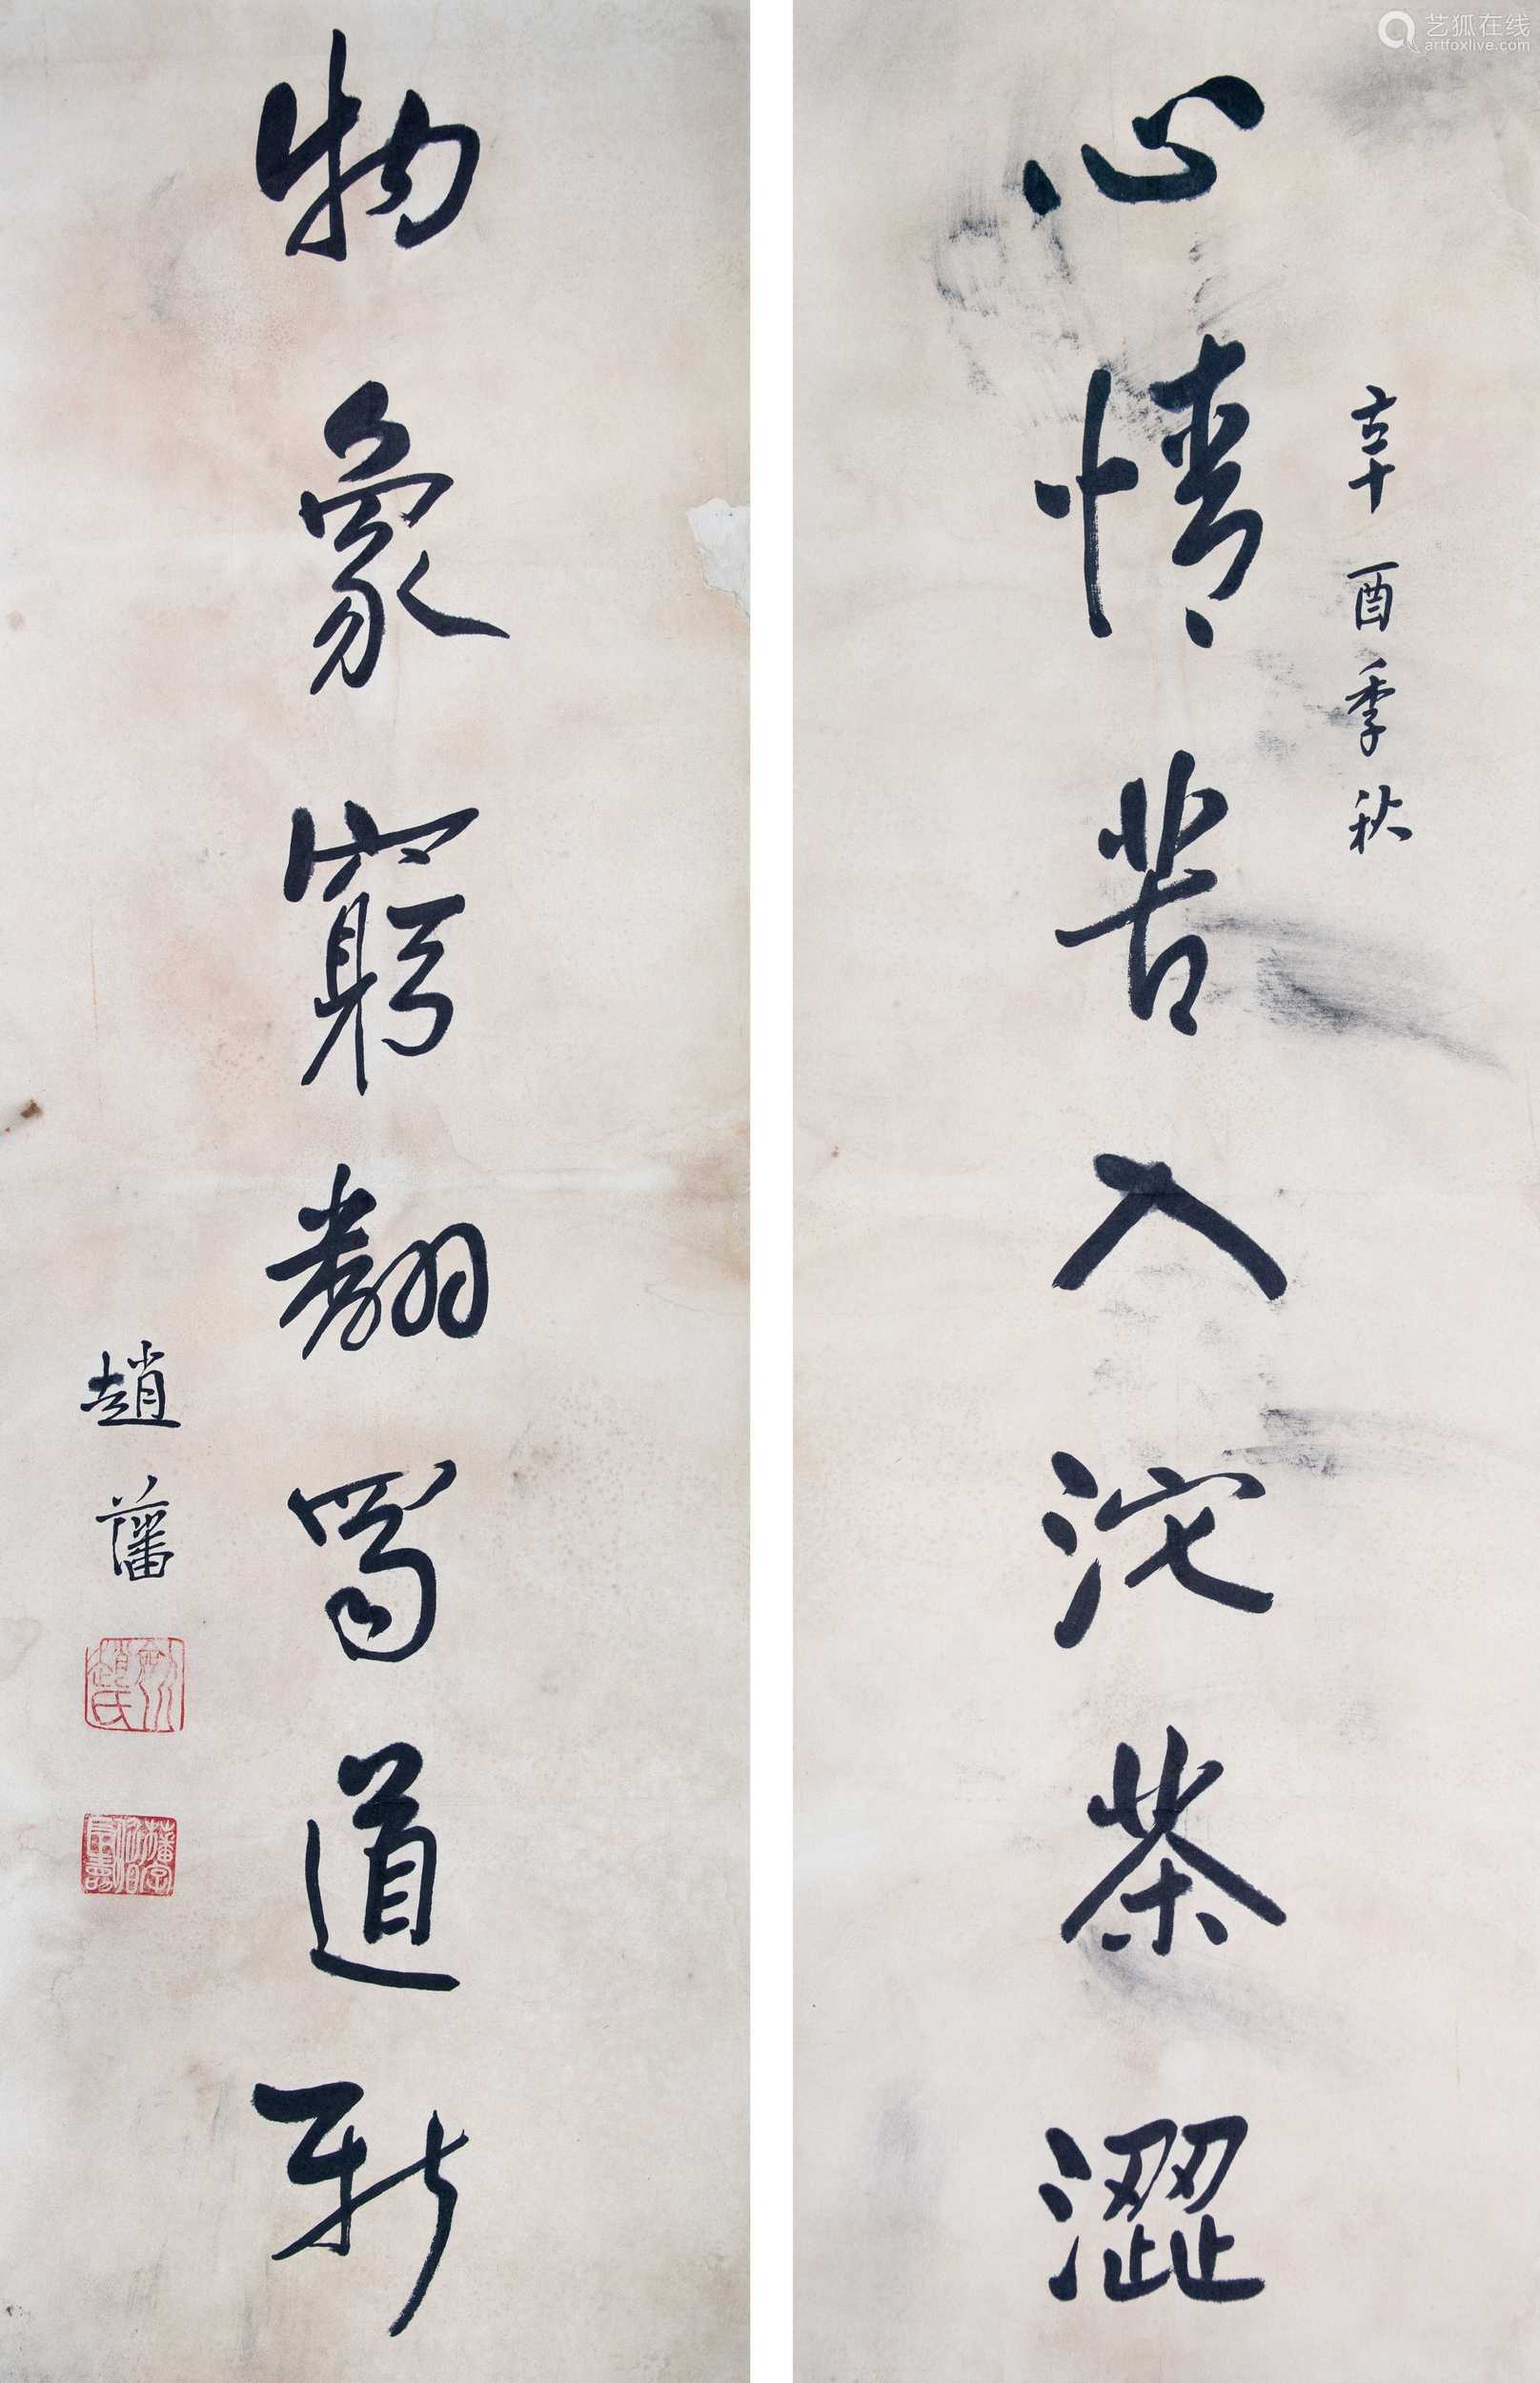 辛酉季秋
心情苦入沱茶澀
物象窮翻蜀道新
趙藩
趙氏
艺狐在线
artfoxlive.com